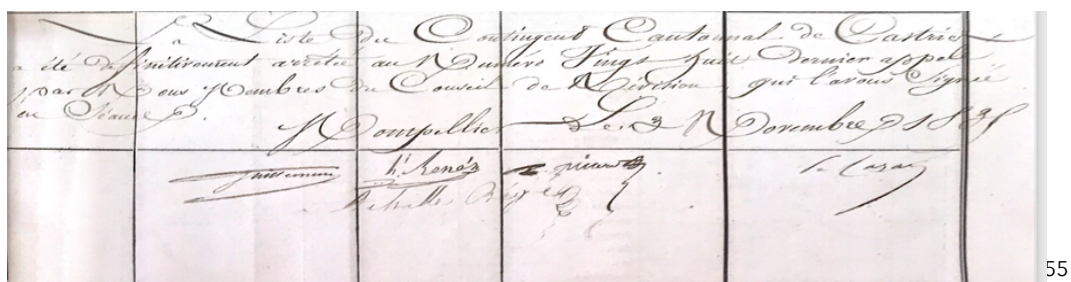 La Liste du Contingent Cantonnal de Castries
a été définitivement arretée au Numéro Vingt huit Dernier appelé
par Nous Membres du Conseil de Révision, qui l'avons Signée
en Séance.
Montpellier Le 3 Novembre 1835
h. René
55